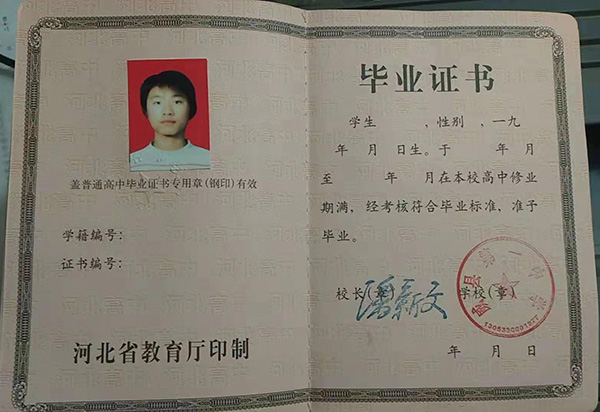 盖普通高中毕业证书专用章(钢印)有效
学籍编号：
证书编号：
河北省教育厅印制
毕业证书
学生 ，性别 ，一九
年 月 日生。于 年 月
至 年 月在本校高中修业
期满，经考核符合毕业标准，准予
毕业。
校长(章) 学校(章)
潘新文
年 月 日